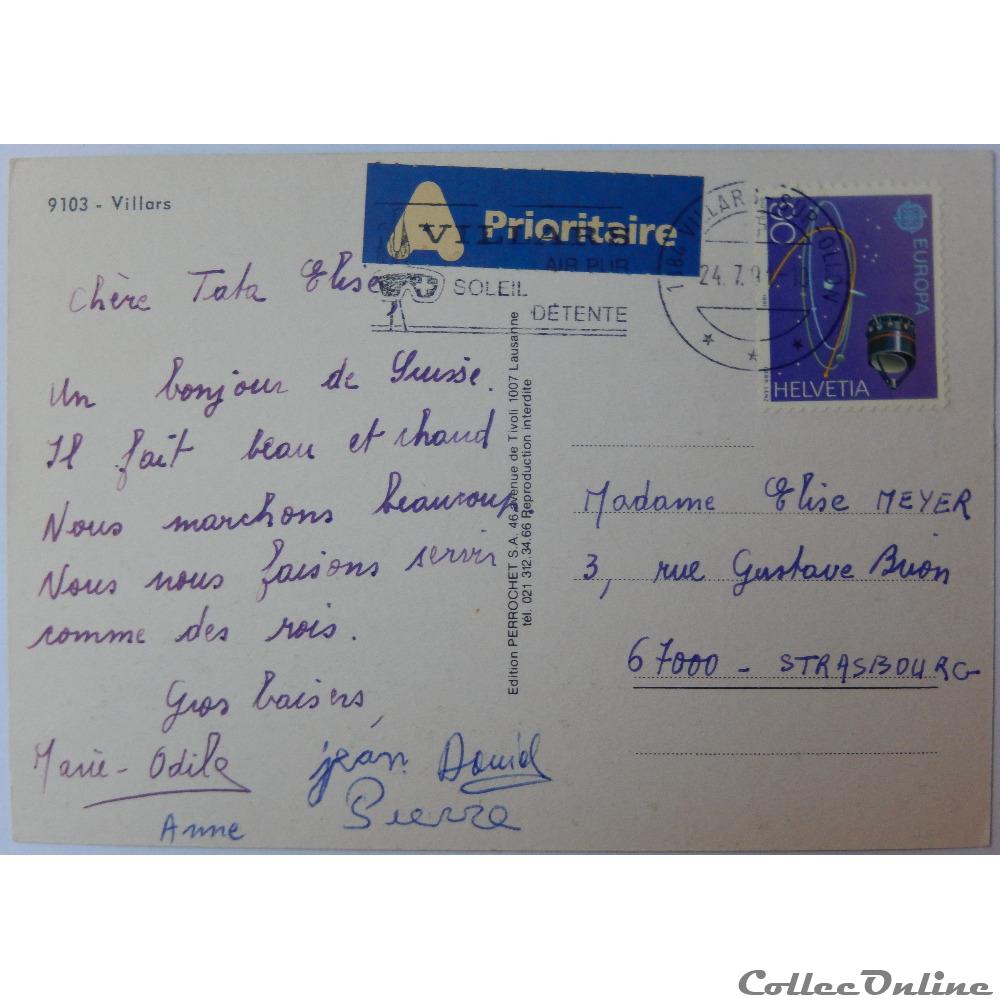 9103 - Villars
A Prioritaire
VILLARS
AIR PUR
SOLEIL
DÉTENTE
VILLARS-SUR-OLLON
24.7.9
90
EUROPA
HELVETIA
Chère Tata Elise,
Un bonjour de Suisse.
Il fait beau et chaud
Nous marchons beaucoup.
Nous nous faisons servir
comme des rois.
Gros baisers,
Marie-Odile
Jean Daniel
Pierre
Anne
Edition PERROCHET S.A. 46, avenue de Tivoli 1007 Lausanne
tél. 021 312.34.66 Reproduction interdite
Madame Elise MEYER
3, rue Gustave Brion
67000 - STRASBOURG
CollecOnline